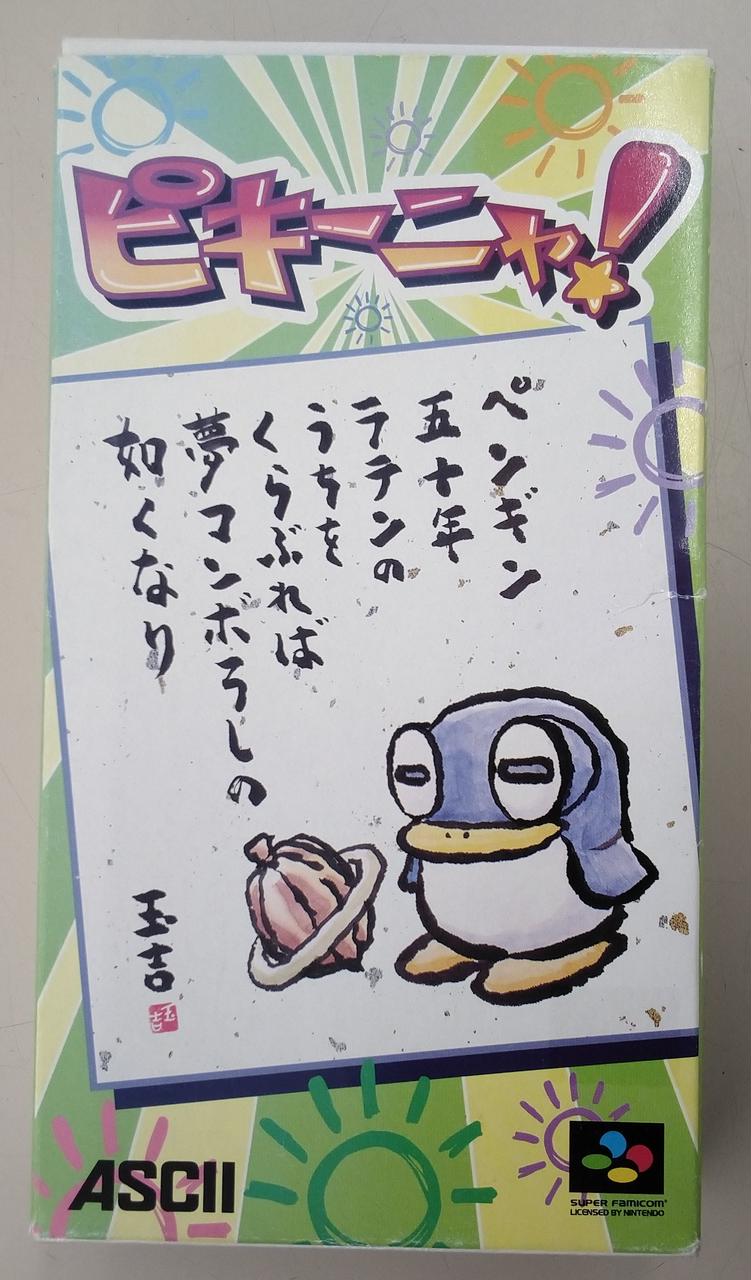 ピキーニャ!
ペンギン
五十年
ラテンの
うちを
くらぶれば
夢マンボうしの
如くなり
玉吉
玉吉
ASCII
SUPER FAMICOM®
LICENSED BY NINTENDO